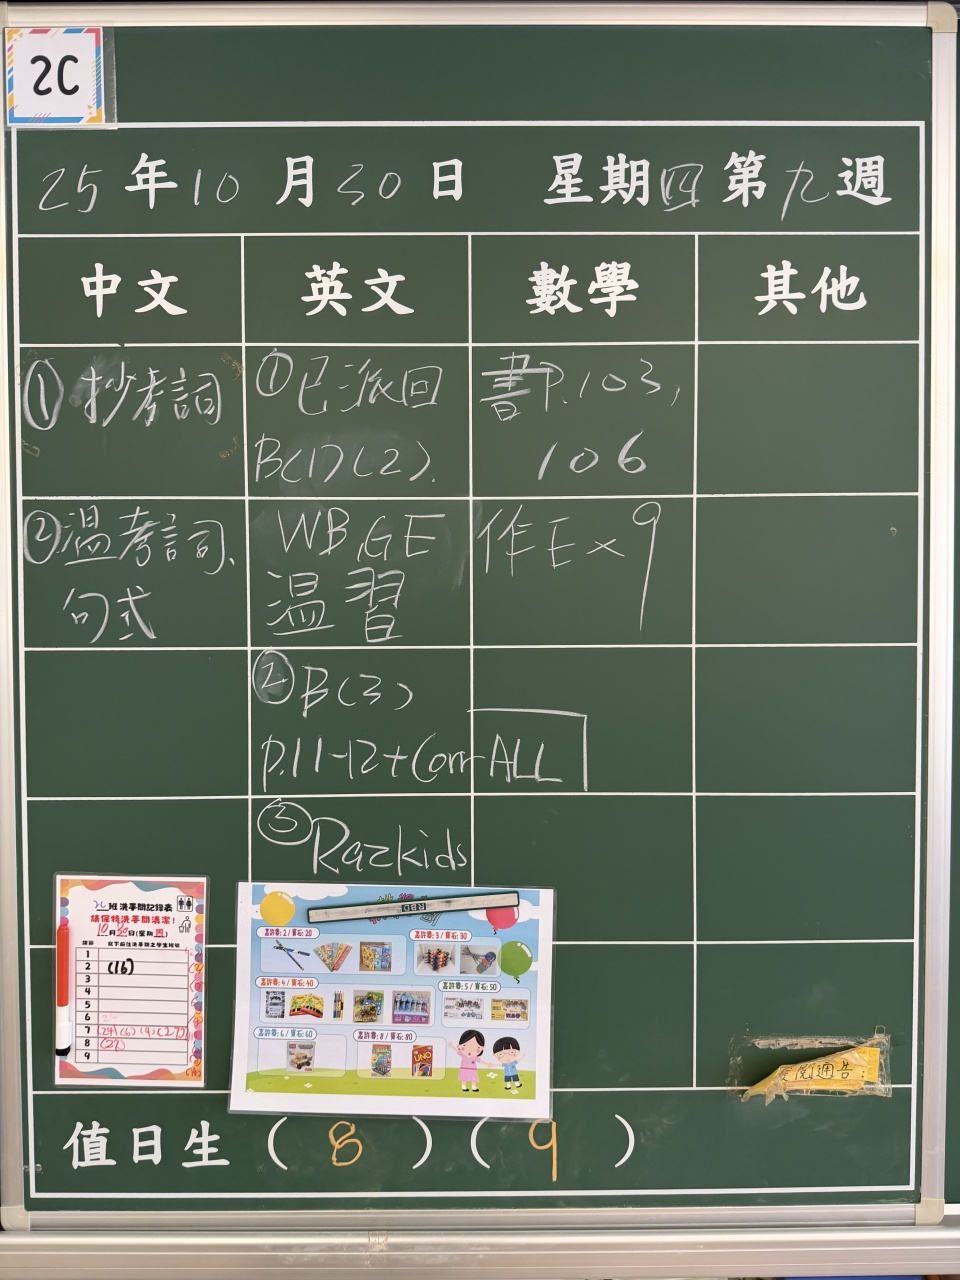 2C
25年10月30日 星期四第九週
中文 英文 數學 其他
①抄考詞
②温考詞、
句式
①已派回
B(1)(2).
WB,GE
温習
②B(3)
p.11-12+Corr-ALL
③Razkids
書P.103,
106
作Ex9
2C班洗手間記錄表
請保持洗手間清潔!
10月30日(星期四)
1
2 (16)
3
4
5
6
7 (24)(6)(9)(27)
8 (27)
9
RBD
嘉許章:2/寶石:20
嘉許章:3/寶石:30
嘉許章:4/寶石:40
嘉許章:5/寶石:50
嘉許章:6/寶石:60
嘉許章:8/寶石:80
UNO
通告:
值日生(8)(9)